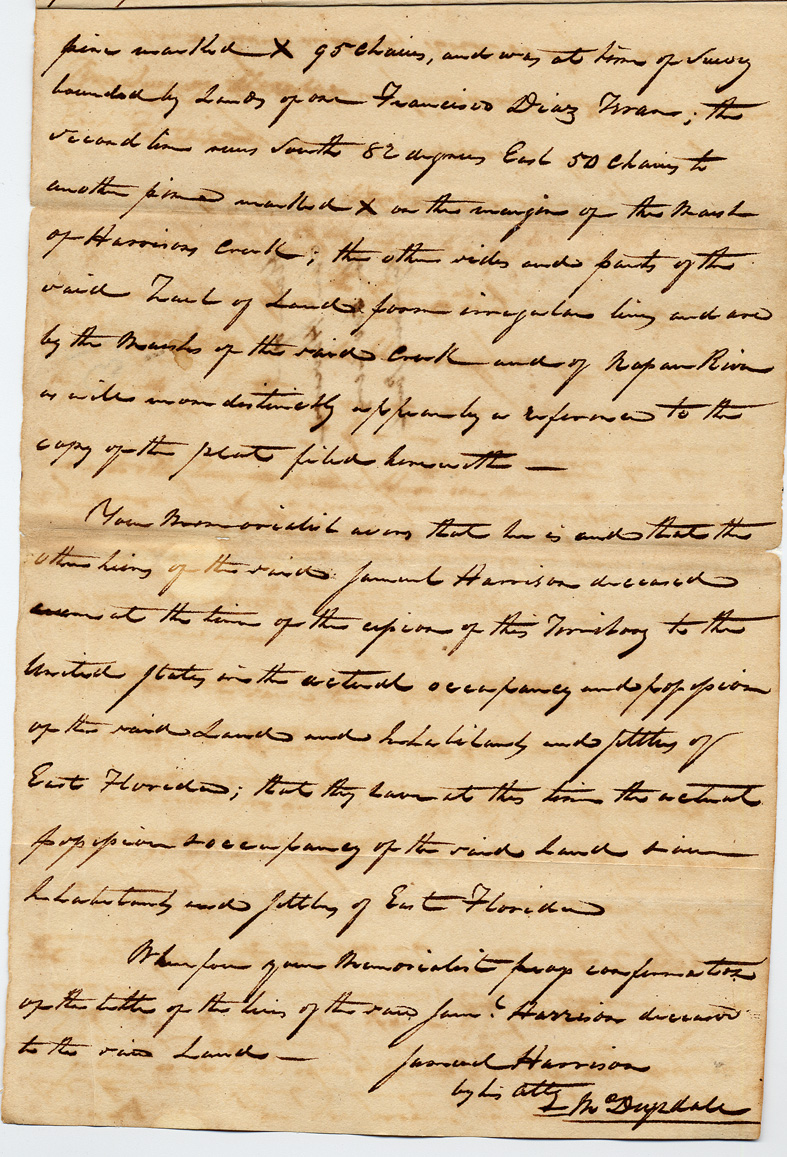 pine marked X 95 Chains, and was at time of Survey
bounded by Lands of one Francisco Diaz; the
second line runs South 82 degrees East 50 Chains to
another pine marked X on the margin of the Marsh
of Harrisons Creek; the other sides and parts of the
said Tract of Land form irregular lines and are
by the Marshes of the said Creek and of Napau River
as will more distinctly appear by a reference to the
copy of the plat filed herewith —
Your Memorialist avers that he is and that the
other heirs of the said Samuel Harrison deceased
were at the time of the cession of this Territory to the
United States in the actual occupancy and possession
of the said Land and Inhabitants and settlers of
East Florida; that they have at this time the actual
possession & occupancy of the said Land & are
Inhabitants and settlers of East Florida
Wherefore your Memorialist prays confirmation
of the title of the heirs of the said Saml. Harrison deceased
to the said Land —
Samuel Harrison
by his Atty